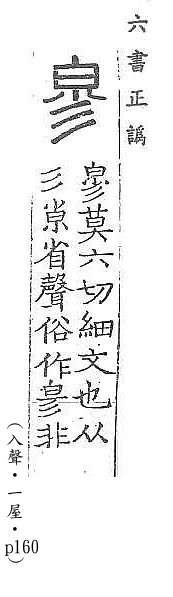 六書正譌
㣎
㣎莫六切細文也从
彡𡭴省聲俗作㣎非
（入聲・一屋・
p160）